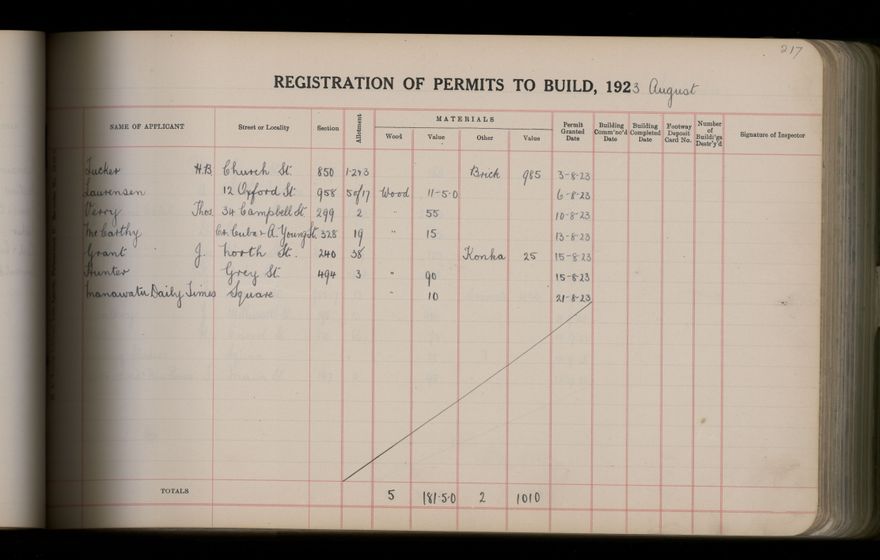 217
REGISTRATION OF PERMITS TO BUILD, 1923 August
NAME OF APPLICANT Street or Locality Section Allotment MATERIALS Wood Value Other Value Permit Granted Date Building Comm'no'd Date Building Completed Date Footway Deposit Card No. Number of Buildi'gs Destr'y'd Signature of Inspector
Tucker H.B Church St. 850 1·2+3 Brick 985 3-8-23
Laurensen 12 Oxford St. 958 50/17 Wood 11-5-0 6-8-23
Verry Thos. 34 Campbell St. 299 2 " 55 10-8-23
McCarthy Cr. Cuba & A. Young St. 328 19 " 15 13-8-23
Grant J. North St. 240 38 Konka 25 15-8-23
Hunter Grey St. 494 3 " 90 15-8-23
Manawatu Daily Times Square " 10 21-8-23
TOTALS 5 181·5·0 2 1010